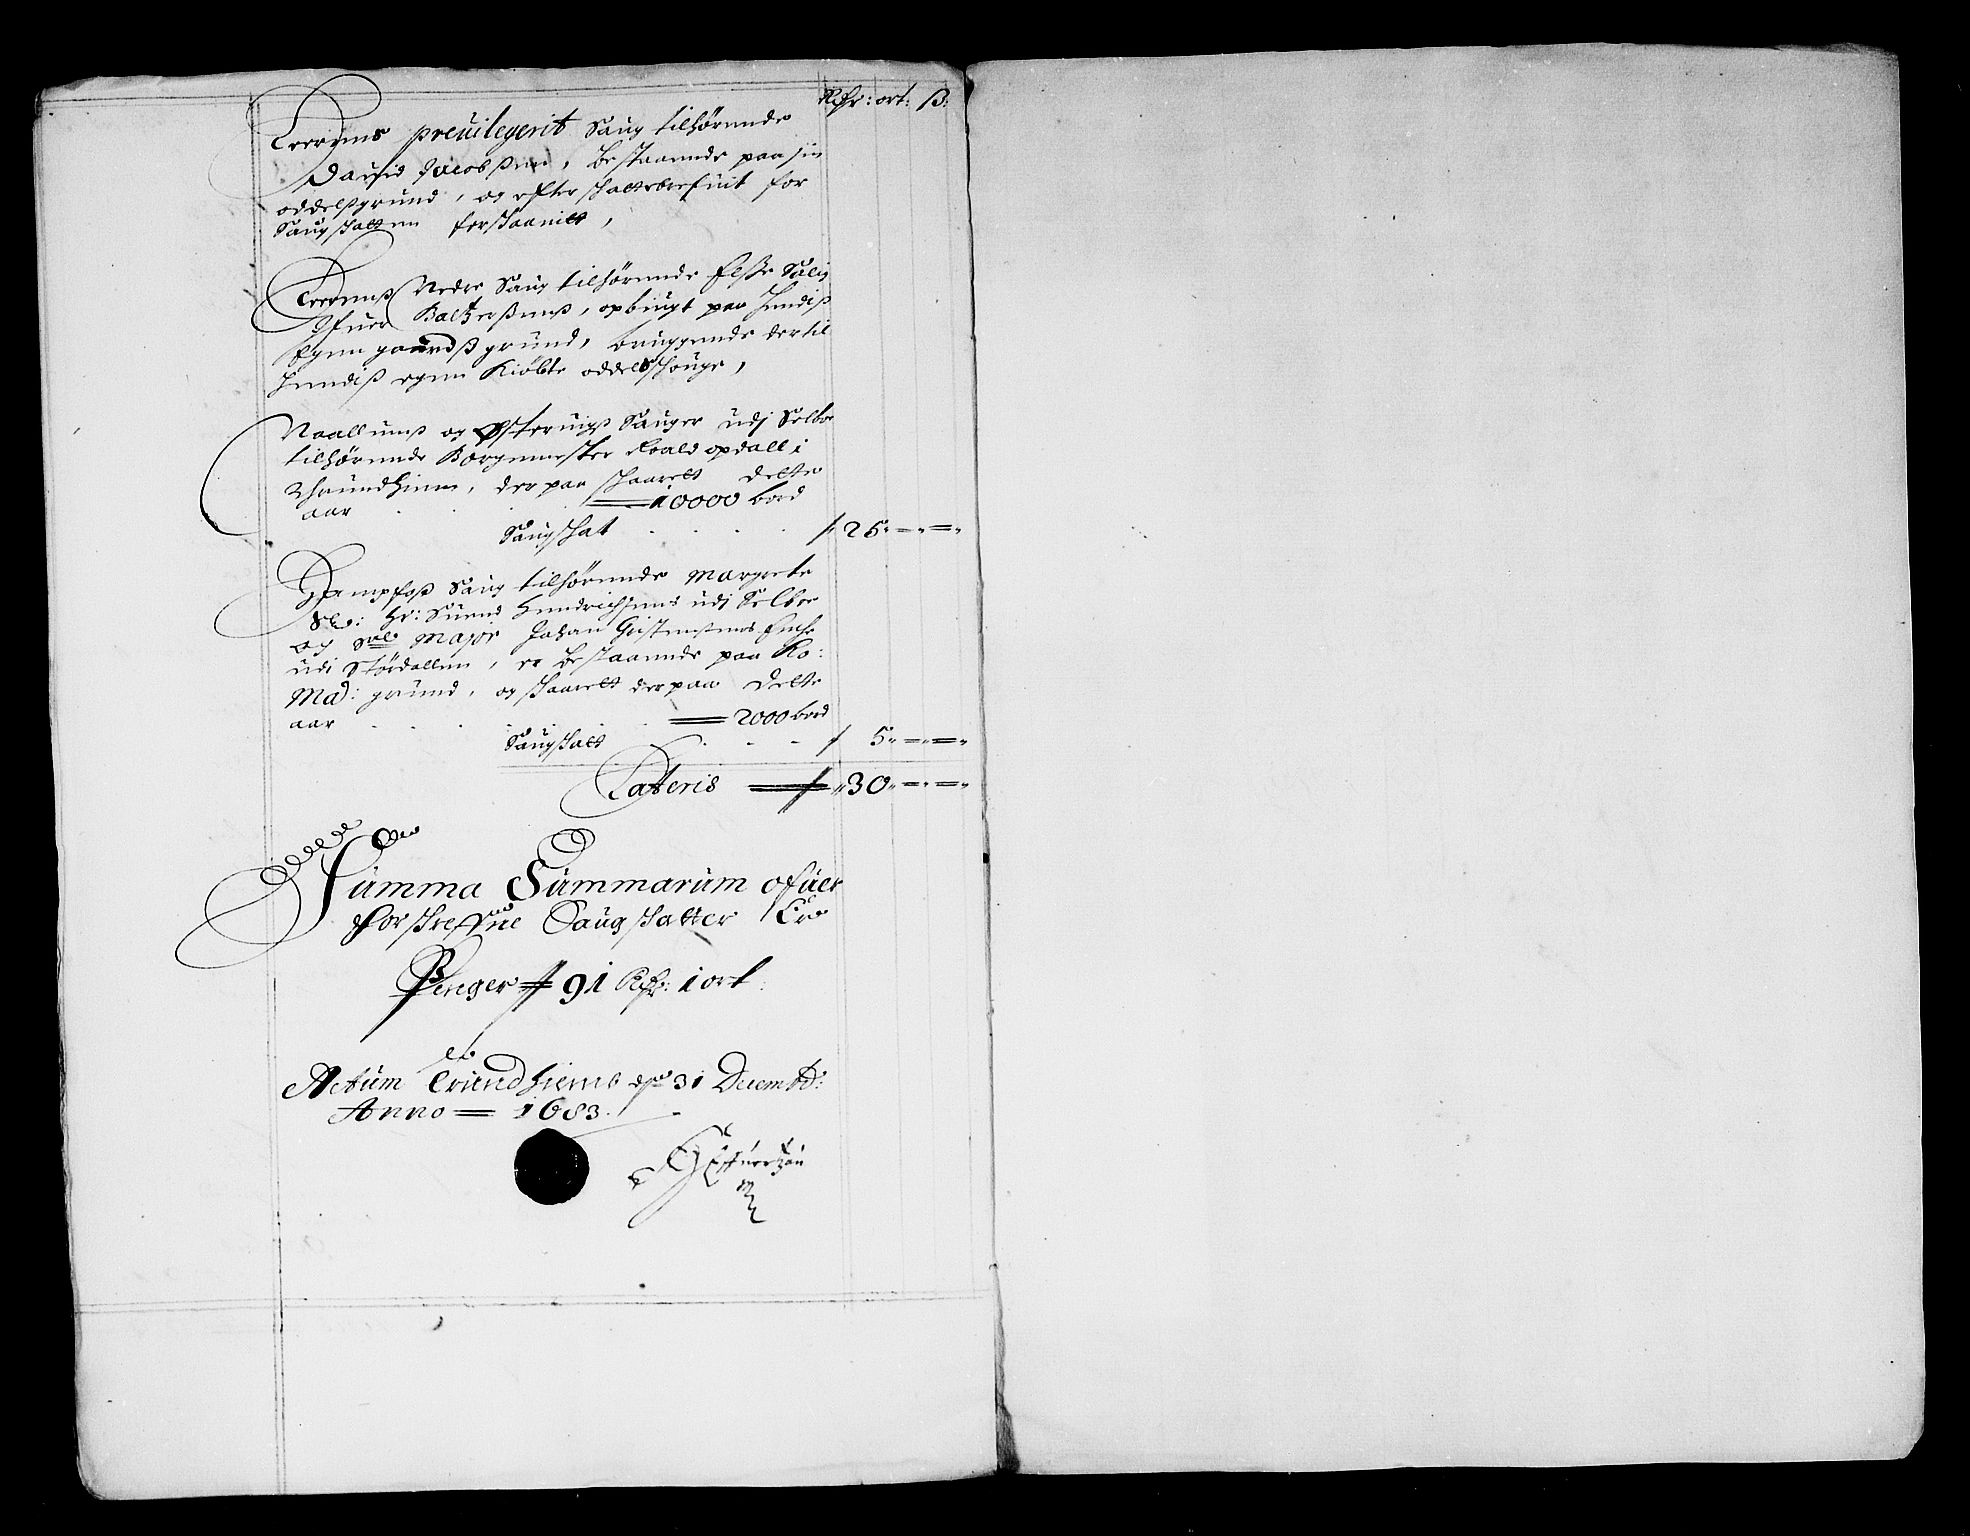 Rdr: ort: ß:
preuilegerit Saug tilhørende
Dauid Jacobßen, bestaaende paa sin
oddelßgrund, og efter schattebrefuit for
Saugschatten forschaanitt,
Nedre Saug tilhørende Elsse Salig
Ifuer Baltzerßens, opbuugt paa hendiß
Egen gaardß grund, bruggende der til
hendiß egen Kiøbte oddelsschouge,
og Østerungs Sauger udj Selboe
tilhørende Borgemester Roald opdall i
Thrundhiem, der paa schaarett dette
aar 10000 bord
Saugschat 25
Saug tilhørende Margrete
Sl: Hr: Suend Hendrichsens udj Selboe
og Sal: Major Johan Christenßens Encke
udi Størdallen, er bestaaende paa Ko:
Maj: grund, og schaarett der paa dette
aar 2000 bord
Saugschatt 5
Latteris 30
Summa Summarum ofuer
forschrefne Saugschatter Er
Penger 91 Rdr: 1 ort
Actum Trundhiemb d 31 Decembr:
Anno 1683.